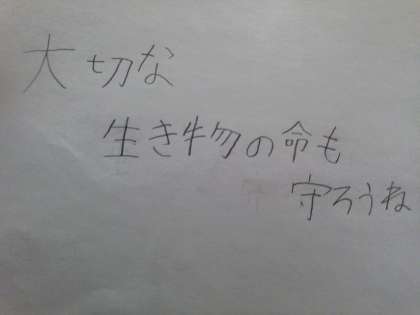 大切な
生き物の命も
守ろうね